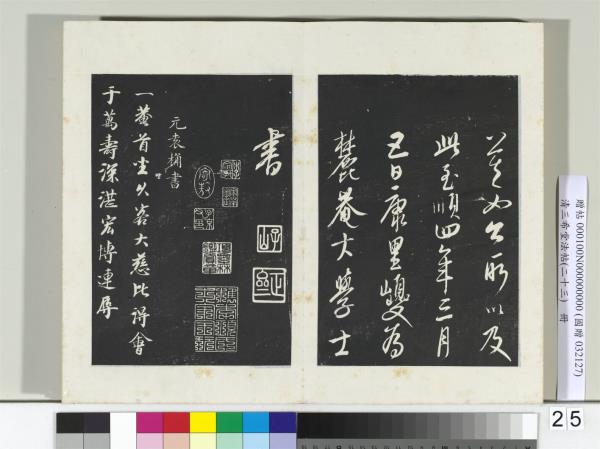 莫如公所以及
此至順四年三月
五日康里巙為
麓菴大學士
書
元袁桷書
一菴首坐久客大慈比得會
于萬壽深湛宏博連屏
贈帖 000100N000000000 (國贈 032127)
清三希堂法帖(二十三) 冊
25